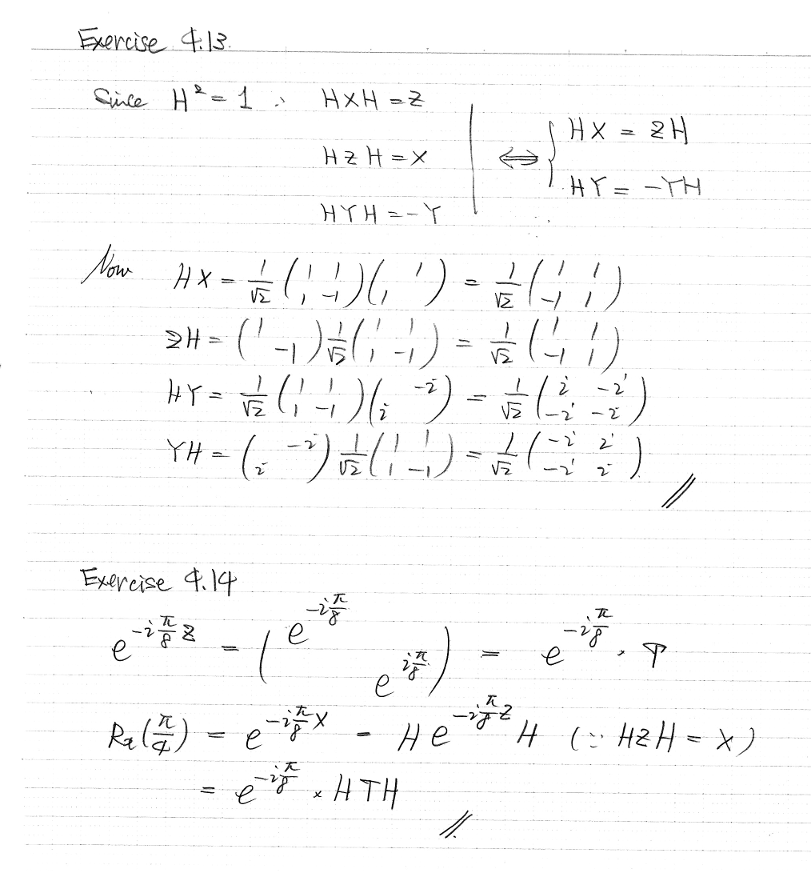 Exercise 4.13
Since H² = 1 ∴ HXH = Z
HZH = X
HYH = -Y
⟺ { HX = ZH
HY = -YH
Now HX = 1/√2 (1 1; 1 -1)( 1; 1 ) = 1/√2 (1 1; -1 1)
ZH = (1 ; -1) 1/√2 (1 1; 1 -1) = 1/√2 (1 1; -1 1)
HY = 1/√2 (1 1; 1 -1)( -i; i ) = 1/√2 (i -i; -i -i)
YH = ( -i; i ) 1/√2 (1 1; 1 -1) = 1/√2 (-i i; -i i) //
Exercise 4.14
e^{-i π/8 Z} = (e^{-i π/8} ; e^{i π/8}) = e^{-i π/8} · T
Rx(π/4) = e^{-i π/8 X} = H e^{-i π/8 Z} H (∵ HZH = X)
= e^{-i π/8} × HTH
//